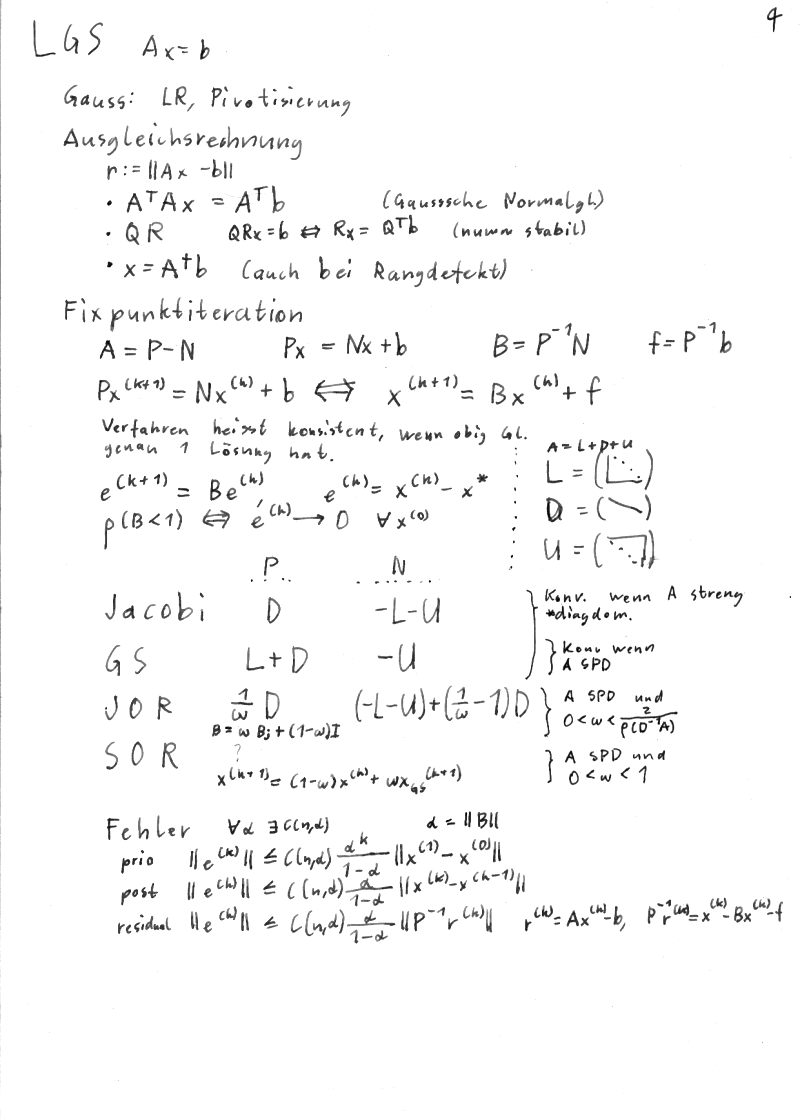 4
LGS Ax=b
Gauss: LR, Pivotisierung
Ausgleichsrechnung
r:=||Ax -b||
• AᵀAx = Aᵀb (Gausssche Normalgl.)
• QR QRx=b ⇔ Rx= Qᵀb (numm stabil)
• x=A†b (auch bei Rangdefekt)
Fixpunktiteration
A = P-N Px = Nx+b B=P⁻¹N f=P⁻¹b
Px^(k+1) = Nx^(k) + b ⇔ x^(k+1) = Bx^(k) + f
Verfahren heisst konsistent, wenn obig Gl.
genau 1 Lösung hat.
e^(k+1) = Be^(k) e^(k) = x^(k) - x*
ρ(B<1) ⇔ e^(k) → 0 ∀x^(0)
A=L+D+U
L = ( )
D = ( )
U = ( )
P N
Jacobi D -L-U
GS L+D -U
Konv. wenn A streng
diagdom.
} Konv wenn
A SPD
JOR 1/ω D (-L-U)+(1/ω -1)D } A SPD und
0<ω< 2/ρ(D⁻¹A)
B= ω Bj + (1-ω)I
SOR ? } A SPD und
0<ω<1
x^(k+1) = (1-ω)x^(k) + ωx_GS^(k+1)
Fehler ∀α ∃C(n,α) α = ||B||
prio ||e^(k)|| ≤ C(n,α) α^k/(1-α) ||x^(1) - x^(0)||
post ||e^(k)|| ≤ C(n,α) α/(1-α) ||x^(k) - x^(k-1)||
residual ||e^(k)|| ≤ C(n,α) α/(1-α) ||P⁻¹r^(k)|| r^(k) = Ax^(k)-b, P⁻¹r^(k) = x^(k) - Bx^(k) - f